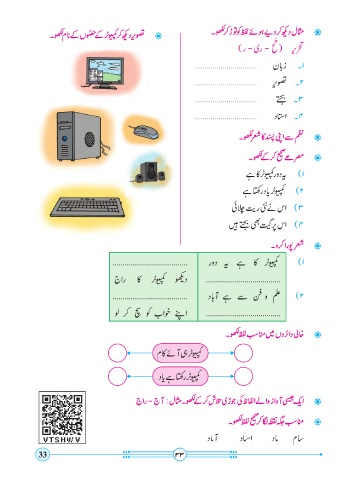 مثال دیکھ کر دیے ہوئے لفظ کو توڑ کر لکھو۔
تحریر (تح - ری - ر)
۱۔ زبان ..............................
۲۔ تصویر ..............................
۳۔ بچے ..............................
۴۔ استاد ..............................
نظم سے اپنی پسند کا شعر لکھو۔
مصرعے صحیح کرکے لکھو۔
۱) یہ دور کمپیوٹر کا ہے
۲) کمپیوٹر یاد رکھتا ہے
۳) اس نے نئی ریت چلائی
۴) اس پر گیت بھی بجتے ہیں
تصویر دیکھ کر کمپیوٹر کے حصوں کے نام لکھو۔
شعر پورا کرو۔
۱) کمپیوٹر کا ہے یہ دور ..............................
.............................. دیکھو کمپیوٹر کا راج
۲) علم و فن سے ہے آباد ..............................
.............................. اپنے خواب کو سچ کر لو
خالی دائروں میں مناسب لفظ لکھو۔
کمپیوٹر ہی آئے کام
کمپیوٹر رکھتا ہے یاد
ایک جیسی آواز والے الفاظ کی جوڑی تلاش کرکے لکھو۔ مثال : آج - راج
مناسب جگہ نقطہ لگا کر صحیح لفظ لکھو۔
سام داد اساد آباد
VTSHWV
33
۳۳